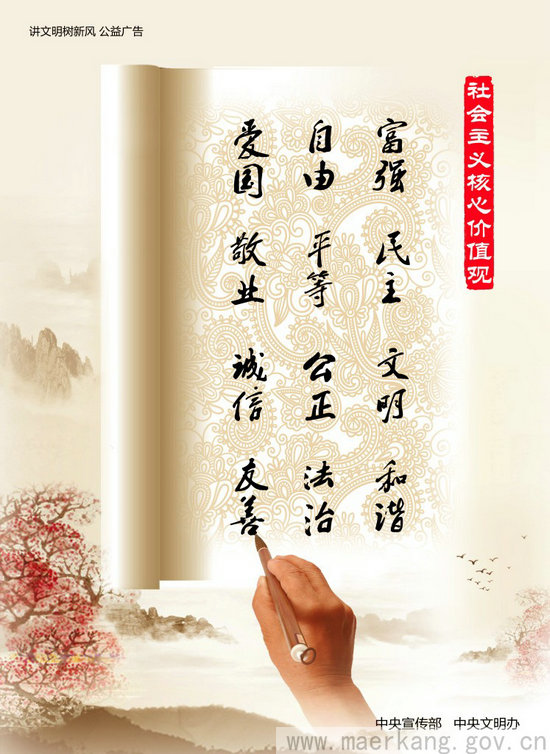 讲文明树新风 公益广告
社会主义核心价值观
富强 民主 文明 和谐
自由 平等 公正 法治
爱国 敬业 诚信 友善
中央宣传部 中央文明办
www.maerkang.gov.cn